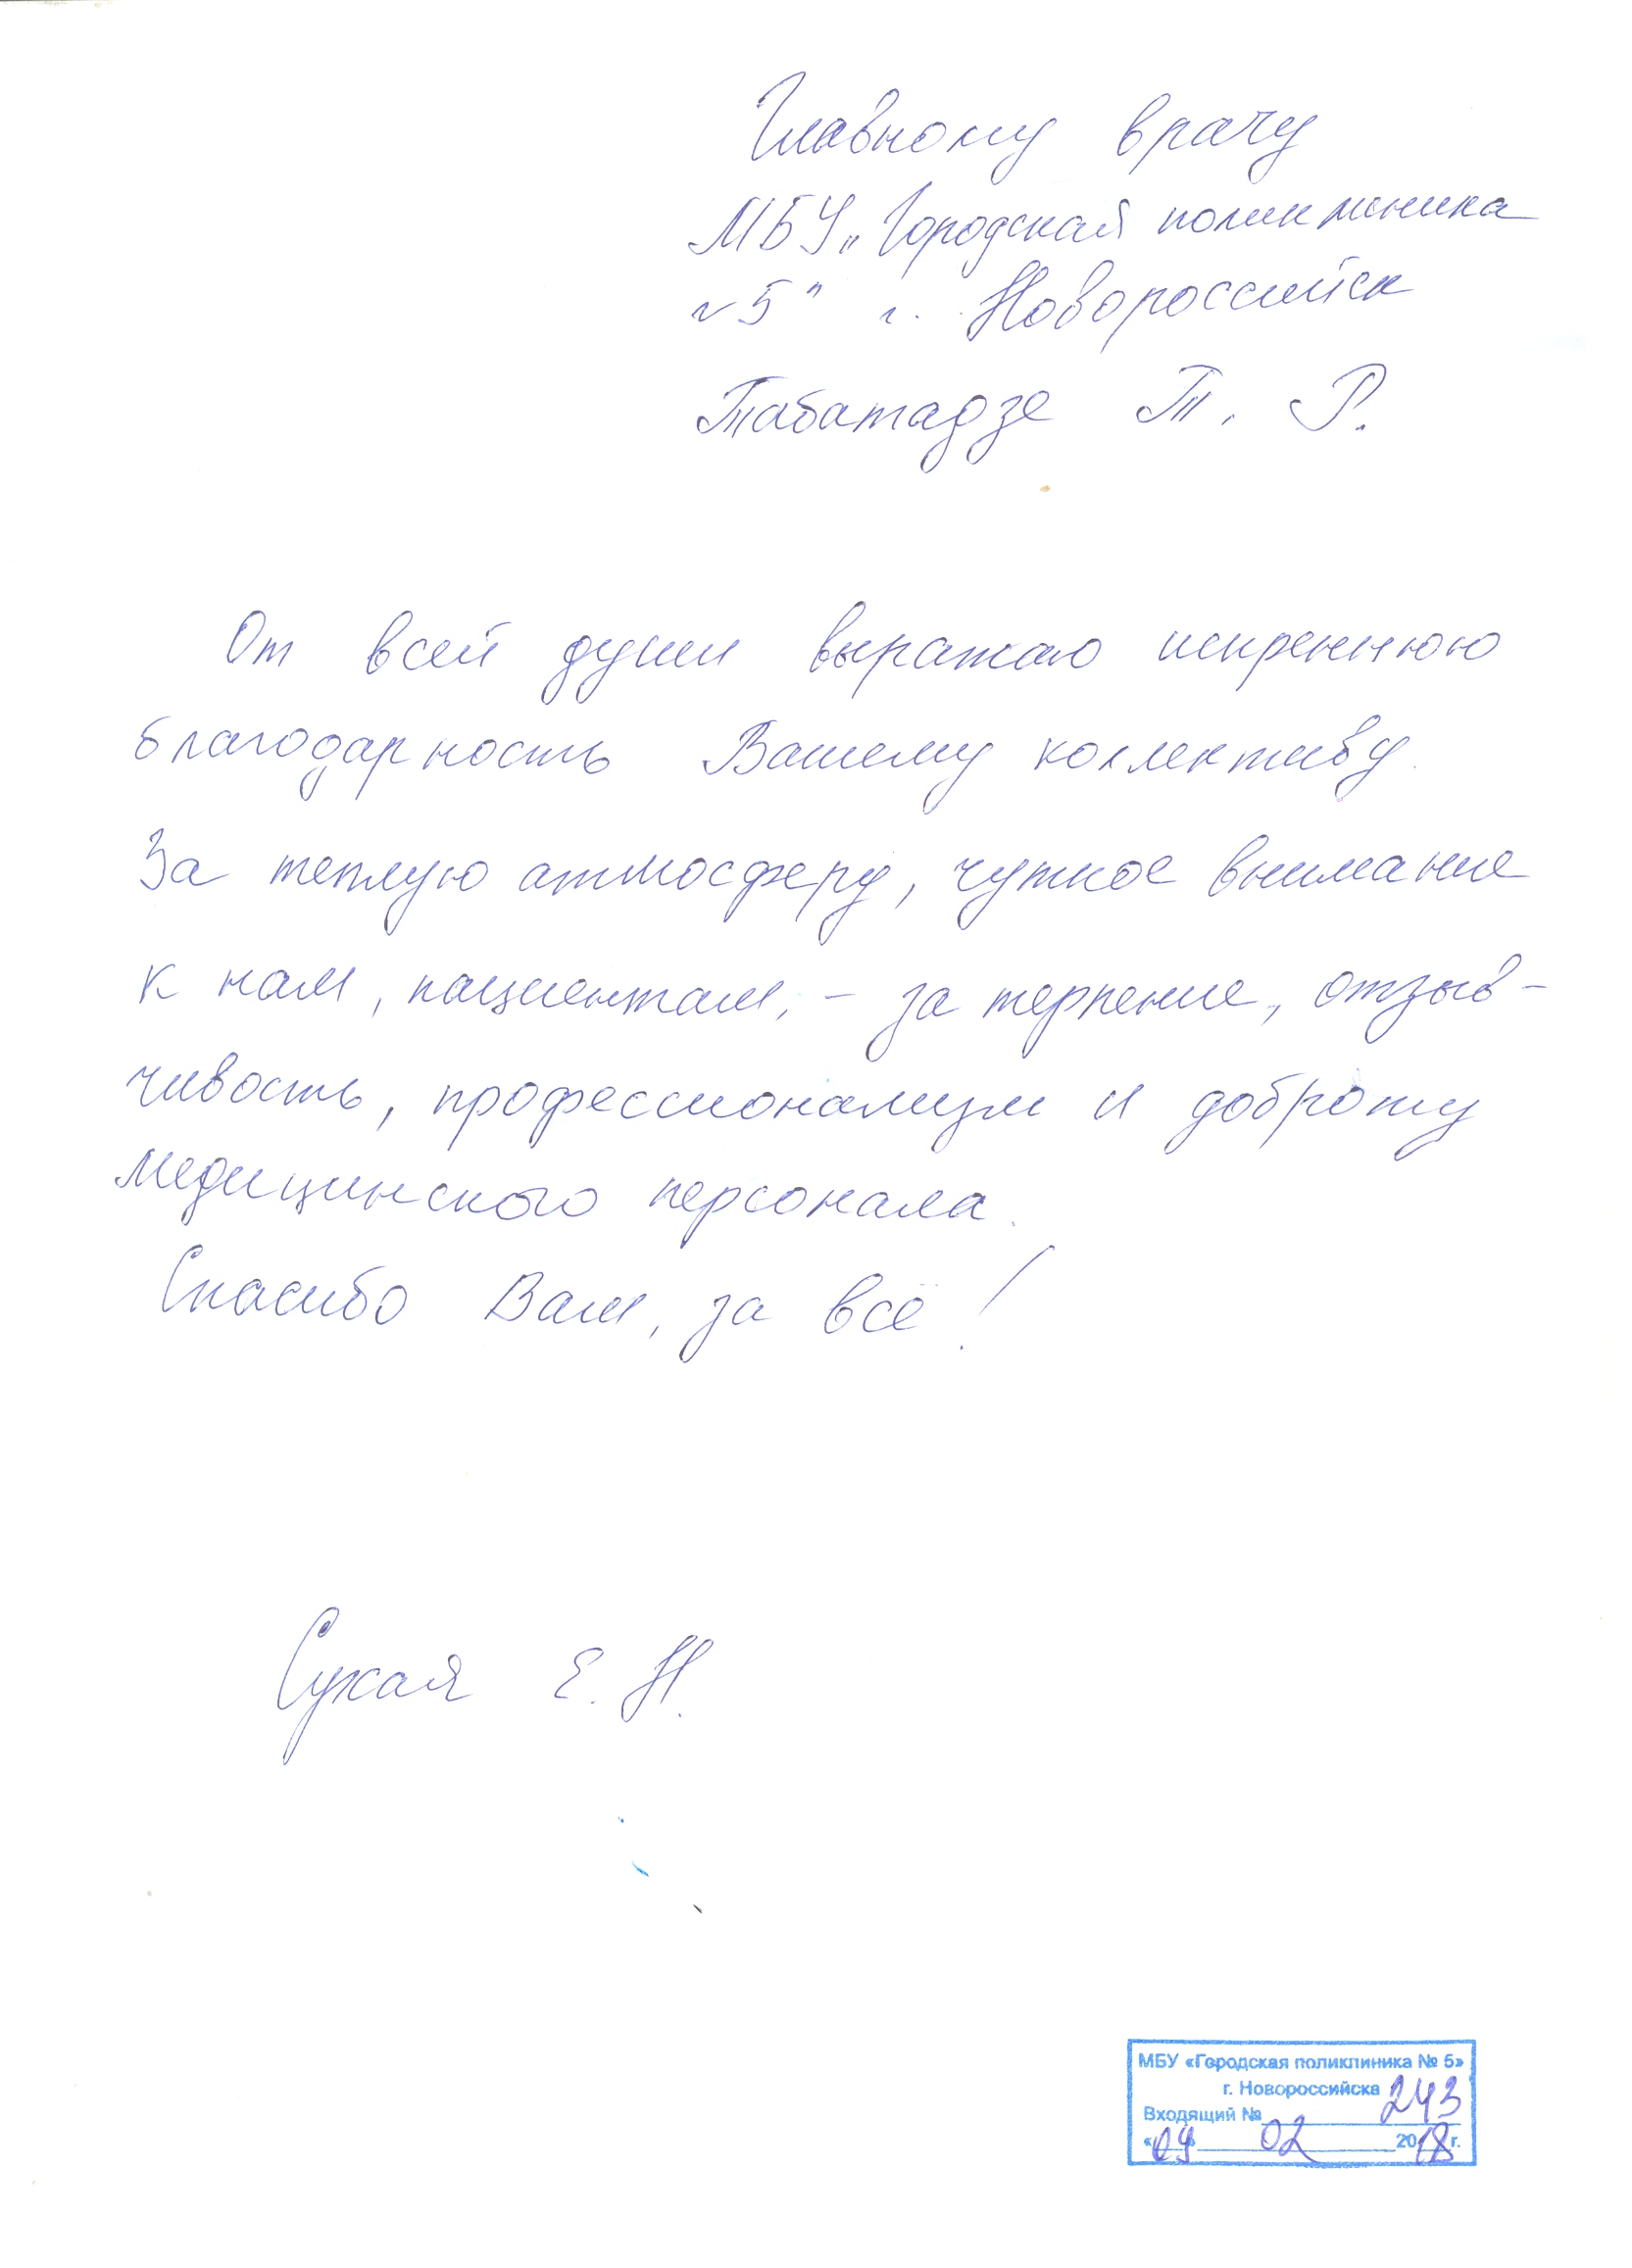 Главному врачу
МБУ „Городская поликлиника
№5" г. Новороссийск
Табатадзе Т. Р.
От всей души выражаю искреннюю
благодарность Вашему коллективу.
За теплую атмосферу, чуткое внимание
к нам, пациентам, – за терпение, отзыв-
чивость, профессионализм и доброту
медицинского персонала.
Спасибо Вам, за всё!
Сухая Е. Н.
МБУ «Городская поликлиника № 5»
г. Новороссийска
Входящий № 243
«09» 02 2018 г.